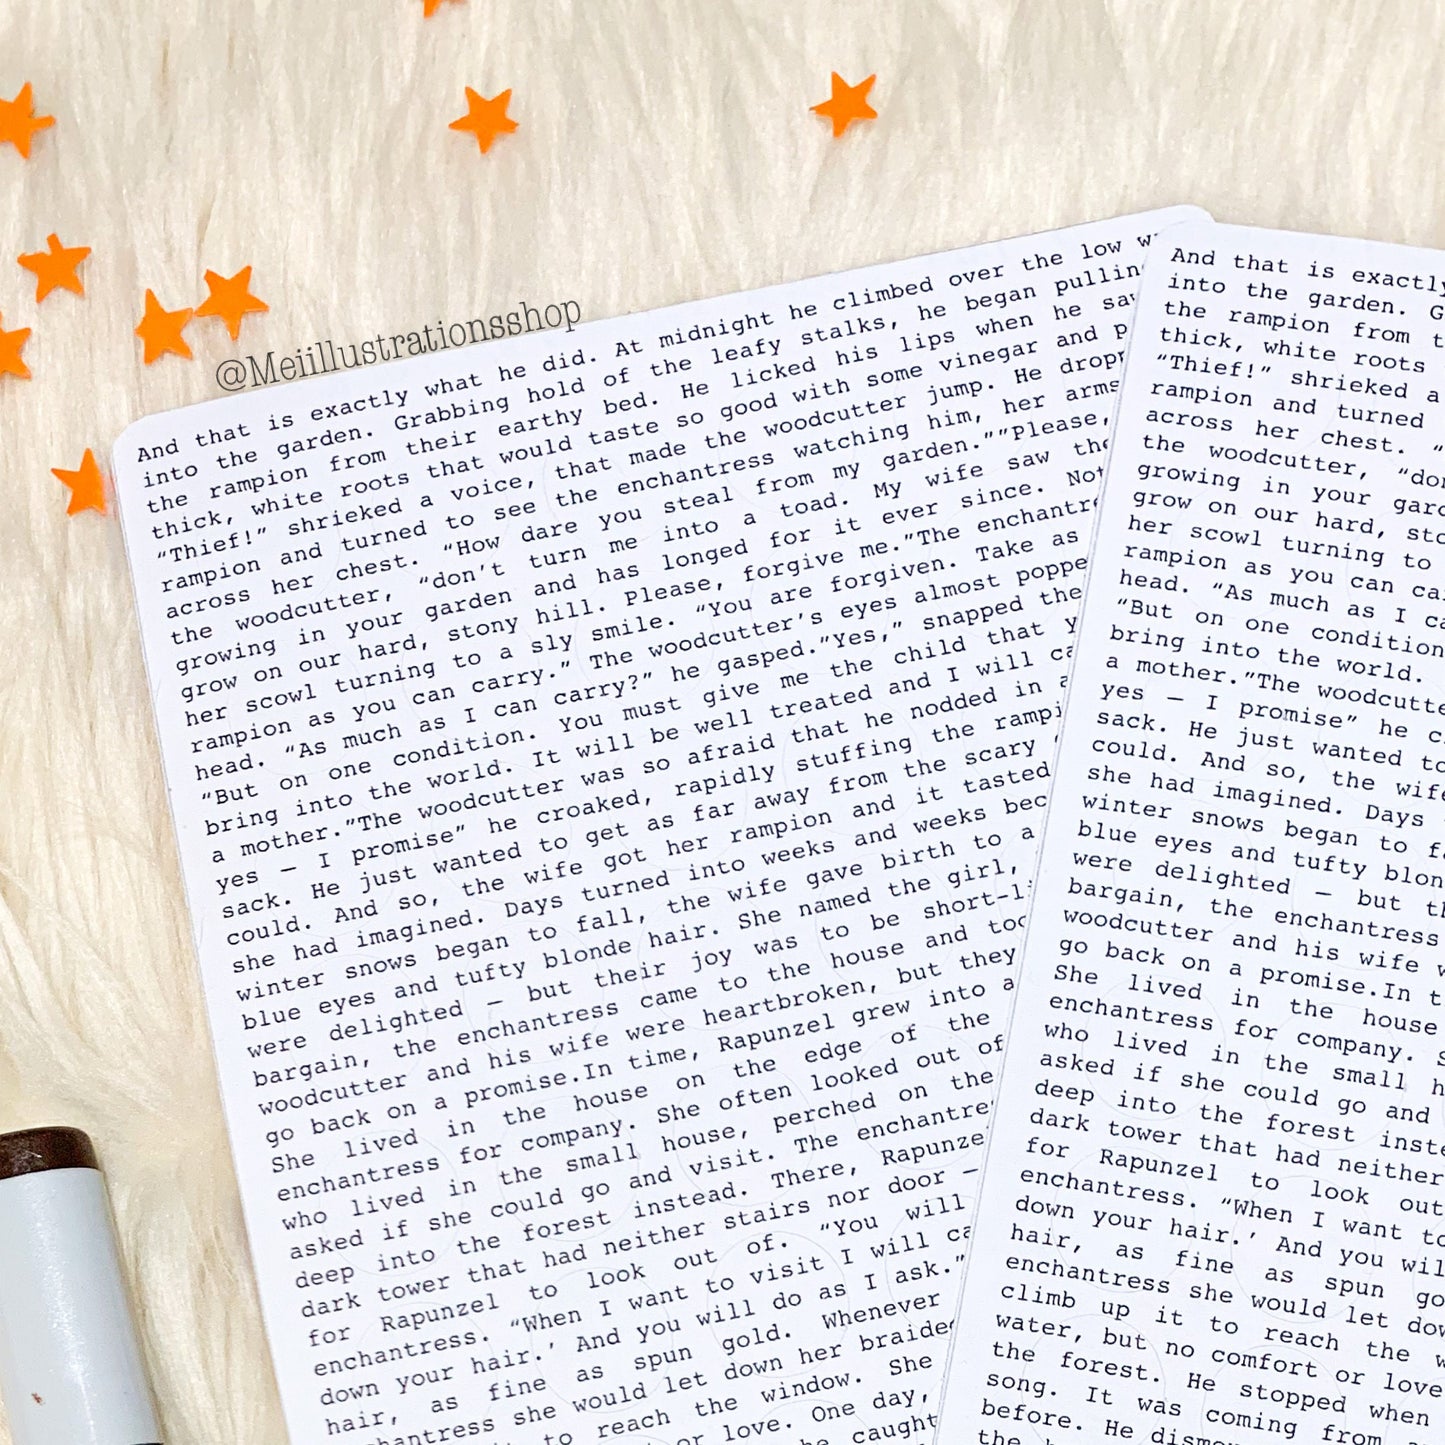 @Meiillustrationsshop
And that is exactly what he did. At midnight he climbed over the low w
into the garden. Grabbing hold of the leafy stalks, he began pulling
the rampion from their earthy bed. He licked his lips when he saw
thick, white roots that would taste so good with some vinegar and p
“Thief!” shrieked a voice, that made the woodcutter jump. He dropp
rampion and turned to see the enchantress watching him, her arms
across her chest. “How dare you steal from my garden.””Please,
the woodcutter, “don't turn me into a toad. My wife saw the
growing in your garden and has longed for it ever since. Not
grow on our hard, stony hill. Please, forgive me.”The enchantre
her scowl turning to a sly smile. “You are forgiven. Take as
rampion as you can carry.” The woodcutter's eyes almost poppe
head. “As much as I can carry?” he gasped.”Yes,” snapped the
“But on one condition. You must give me the child that y
bring into the world. It will be well treated and I will ca
a mother.”The woodcutter was so afraid that he nodded in a
yes — I promise” he croaked, rapidly stuffing the rampi
sack. He just wanted to get as far away from the scary
could. And so, the wife got her rampion and it tasted
she had imagined. Days turned into weeks and weeks bec
winter snows began to fall, the wife gave birth to a
blue eyes and tufty blonde hair. She named the girl,
were delighted — but their joy was to be short-li
bargain, the enchantress came to the house and too
woodcutter and his wife were heartbroken, but they
go back on a promise.In time, Rapunzel grew into a
She lived in the house on the edge of the
enchantress for company. She often looked out of
who lived in the small house, perched on the
asked if she could go and visit. The enchantre
deep into the forest instead. There, Rapunze
dark tower that had neither stairs nor door —
for Rapunzel to look out of. “You will
enchantress. “When I want to visit I will ca
down your hair.’ And you will do as I ask.”
hair, as fine as spun gold. Whenever
hantress she would let down her braided
to reach the window. She
or love. One day,
he caught
And that is exactly
into the garden. G
the rampion from t
thick, white roots
“Thief!” shrieked a
rampion and turned
across her chest. “
the woodcutter, “don
growing in your gard
grow on our hard, sto
her scowl turning to
rampion as you can ca
head. “As much as I ca
“But on one condition
bring into the world.
a mother.”The woodcutte
yes — I promise” he c
sack. He just wanted to
could. And so, the wife
she had imagined. Days
winter snows began to fa
blue eyes and tufty blon
were delighted — but th
bargain, the enchantress
woodcutter and his wife w
go back on a promise.In t
She lived in the house
enchantress for company. S
who lived in the small h
asked if she could go and
deep into the forest inste
dark tower that had neither
for Rapunzel to look out
enchantress. “When I want to
down your hair.’ And you wil
hair, as fine as spun go
enchantress she would let dow
climb up it to reach the w
water, but no comfort or love
the forest. He stopped when
song. It was coming from a
before. He dismo
the